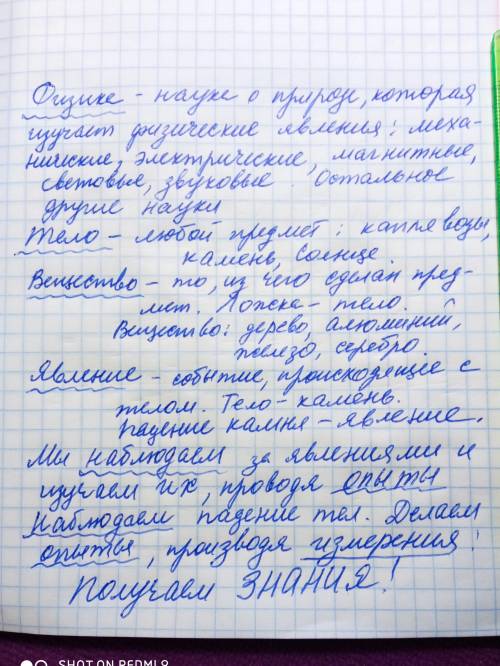 Физика - наука о природе, которая
изучает физические явления: меха-
нические, электрические, магнитные,
световые, звуковые. Остальное
другие науки
Тело - любой предмет: капля воды,
камень, Солнце.
Вещество - то, из чего сделан пред-
мет. Ложка - тело.
Вещество: дерево, алюминий,
железо, серебро.
Явление - событие, происходящее с
телом. Тело - камень.
Падение камня - явление.
Мы наблюдаем за явлениями и
изучаем их, проводя опыты
Наблюдаем падение тел. Делаем
опыты, производя измерения!
Получаем ЗНАНИЯ!
SHOT ON REDMI 9